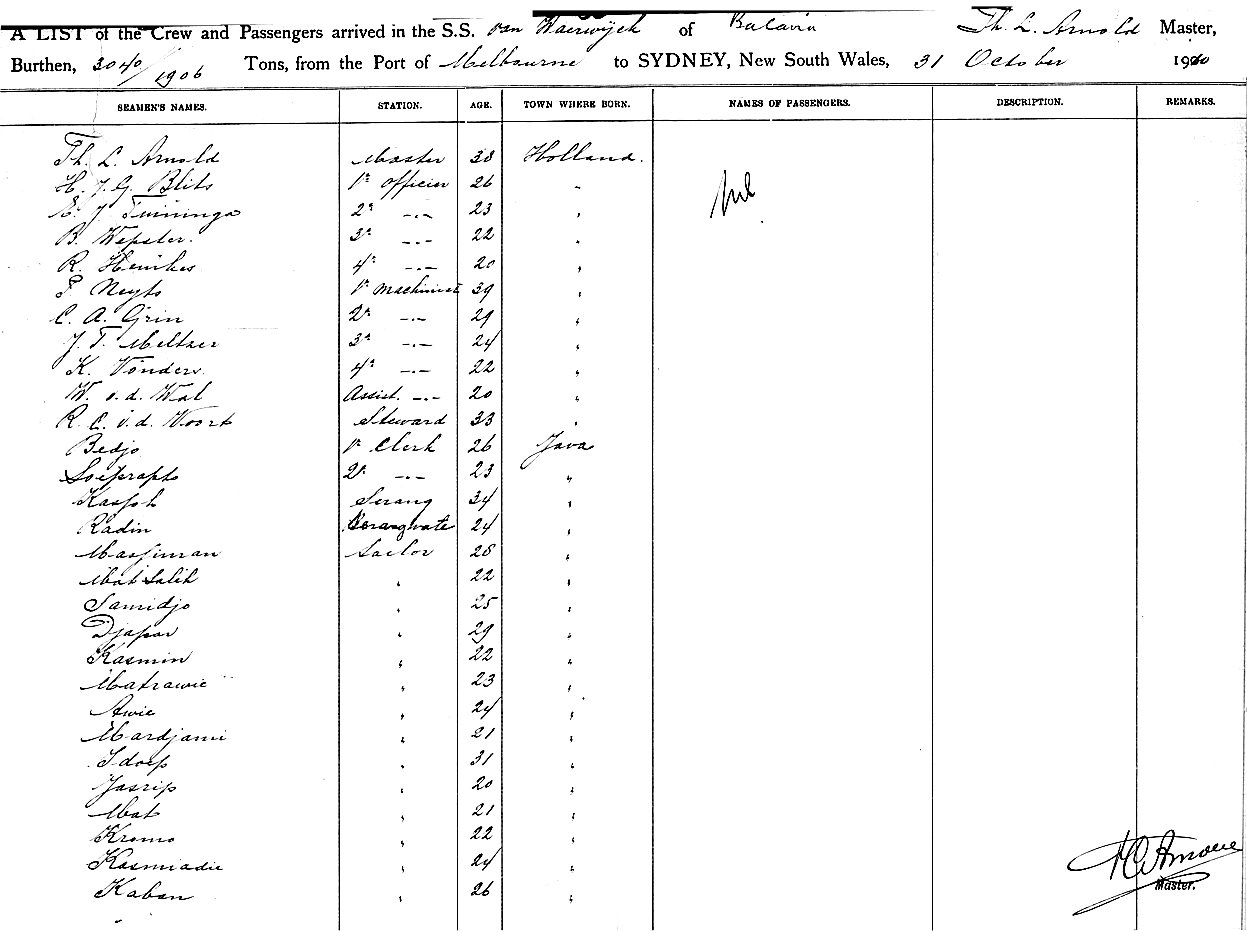 A LIST of the Crew and Passengers arrived in the S.S. van Waerwijck of Batavia Th. L. Arnold Master,
Burthen, 3040/1906 Tons, from the Port of Melbourne to SYDNEY, New South Wales, 31 October 1910
SEAMEN'S NAMES. STATION. AGE. TOWN WHERE BORN. NAMES OF PASSENGERS. DESCRIPTION. REMARKS.
Th. L. Arnold Master 38 Holland.
H. J. G. Blits 1e officier 26 "
E. J. Tuininga 2e —.— 23 "
B. Wepster. 3e —.— 22 "
R. Henkes 4e —.— 20 "
P Neyts 1e Machinist 39 "
C. A. Grin 2e —.— 29 "
J. T. Meltzer 3e —.— 24 "
K. Vonders. 4e —.— 22 "
W. v. d. Wal Assist. —.— 20 "
R. C. v. d. Woort Steward 33 "
Bedjo 1e Clerk 26 Java
Soeprapto 2e —.— 23 "
Serang 34 "
Radin 24 "
Massiman Sailor 28 "
Mat Salih " 22 "
Samidjo " 25 "
Djapar " 29 "
Kasmin " 22 "
Matrawie " 23 "
Awie " 24 "
Mardjami " 21 "
Idoep " 31 "
Jasrip " 20 "
Mat " 21 "
Kromo " 22 "
Kasmiadie " 24 "
Kaban " 26 "
Nil
Master.